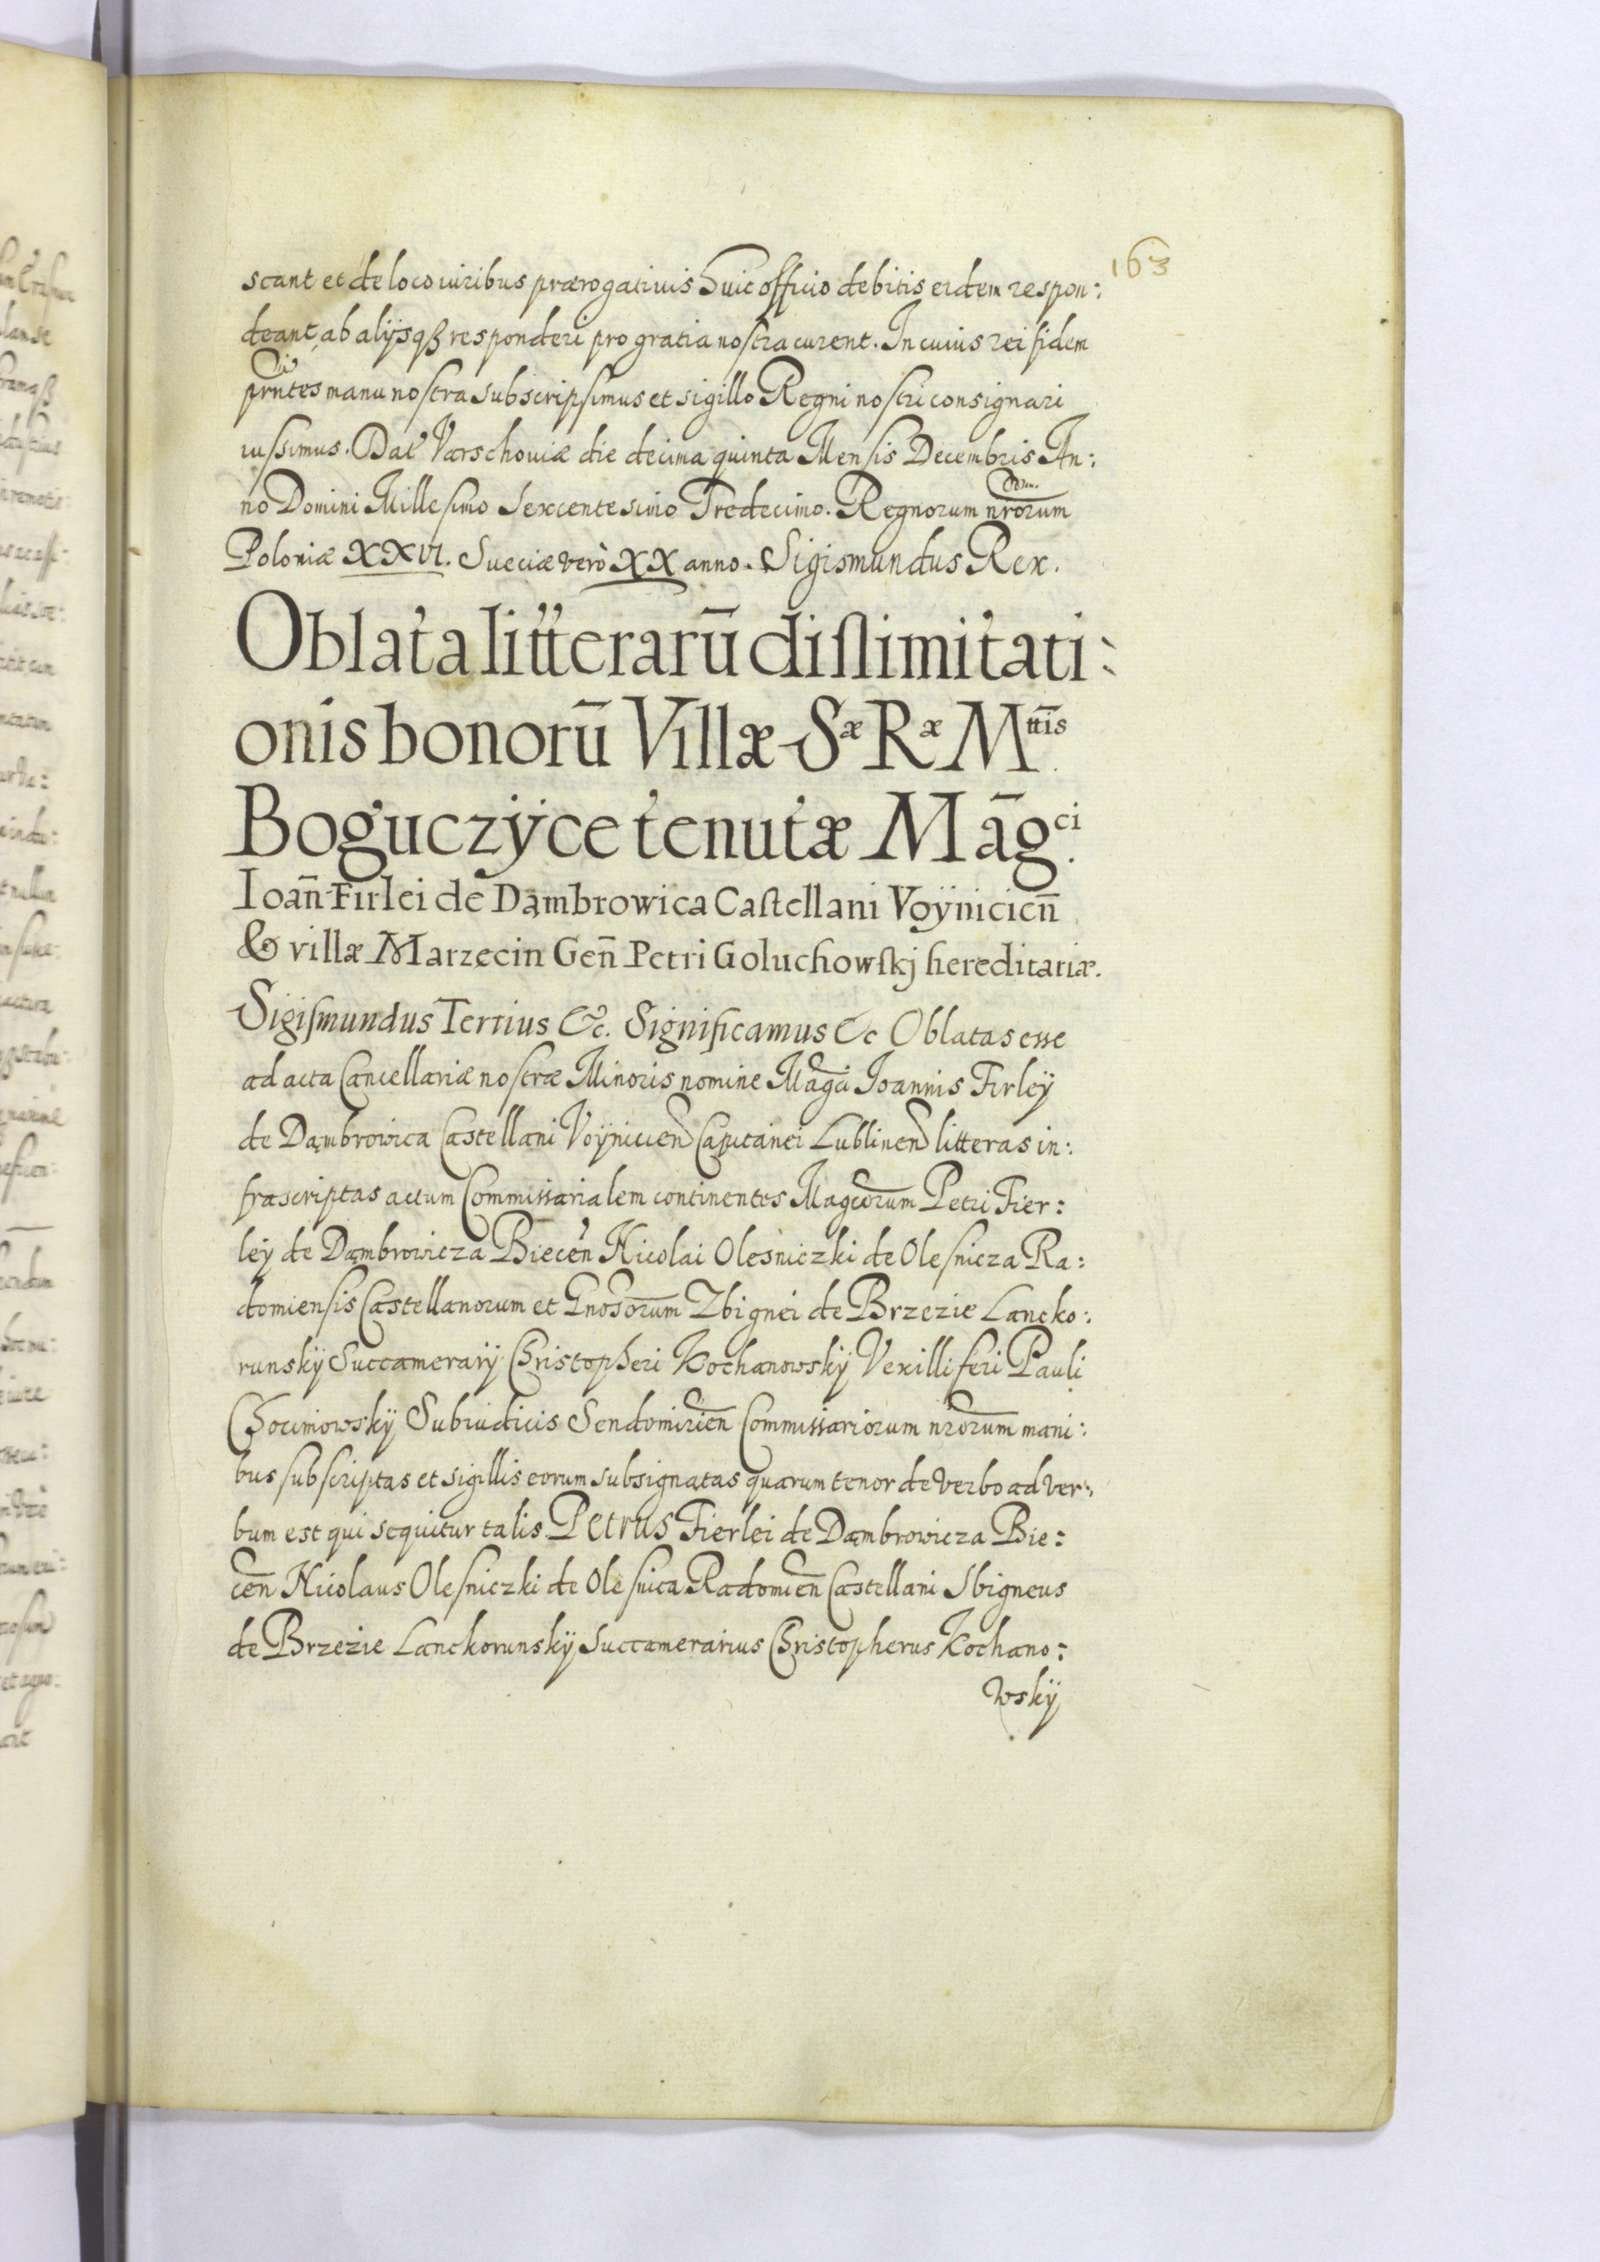 163
scant et de loco iuribus prærogatiuis huic officio debitis eidem respon:
deant, ab alijsqß responderi pro gratia nostra curent. In cuius rei fidem
prntes manu nostra subscripsimus et sigillo Regni nostri consignari
iussimus. Dat Varschouiæ die decima quinta Mensis Decembris An:
no Domini Millesimo Sexcentesimo Tredecimo. Regnorum nrorum
Poloniæ XXVI. Sueciæ verò XX anno. Sigismundus Rex.
Oblata litterarū dislimitati:
onis bonorū Villæ Sæ Ræ Mttis
Boguczÿce tenutæ Māgci.
Ioan̄ Firlei de Dąmbrowica Castellani Voÿnicien̄
& villæ Marzecin Gen̄ Petri Goluchowskj hereditariæ.
Sigismundus Tertius &c. Significamus &c Oblatas esse
ad acta Cancellariæ nostræ Minoris nomine Magci Joannis Firleÿ
de Dąmbrowica Castellani Voÿnicien Capitanei Lublinen litteras in:
frascriptas actum Commissarialem continentes Magcorum Petri Fier:
leÿ de Dąmbrowicza Biecen Nicolai Olesniczki de Olesnicza Ra:
domiensis Castellanorum et Gnosorum Zbignei de Brzezie Lancko:
runskÿ Succamerarÿ Christopheri Kochanowskÿ Vexilliferi Pauli
Chocimowskÿ Subiudicis Sendomirien Commissariorum nrorum mani:
bus subscriptas et sigillis eorum subsignatas quarum tenor de verbo ad ver:
bum est qui sequitur talis Petrus Fierlei de Dąmbrowicza Bie:
cen Nicolaus Olesniczki de Olesnica Radomien Castellani Sbigneus
de Brzezie Lanckorunskÿ Succamerarius Christopherus Kochano:
wskÿ